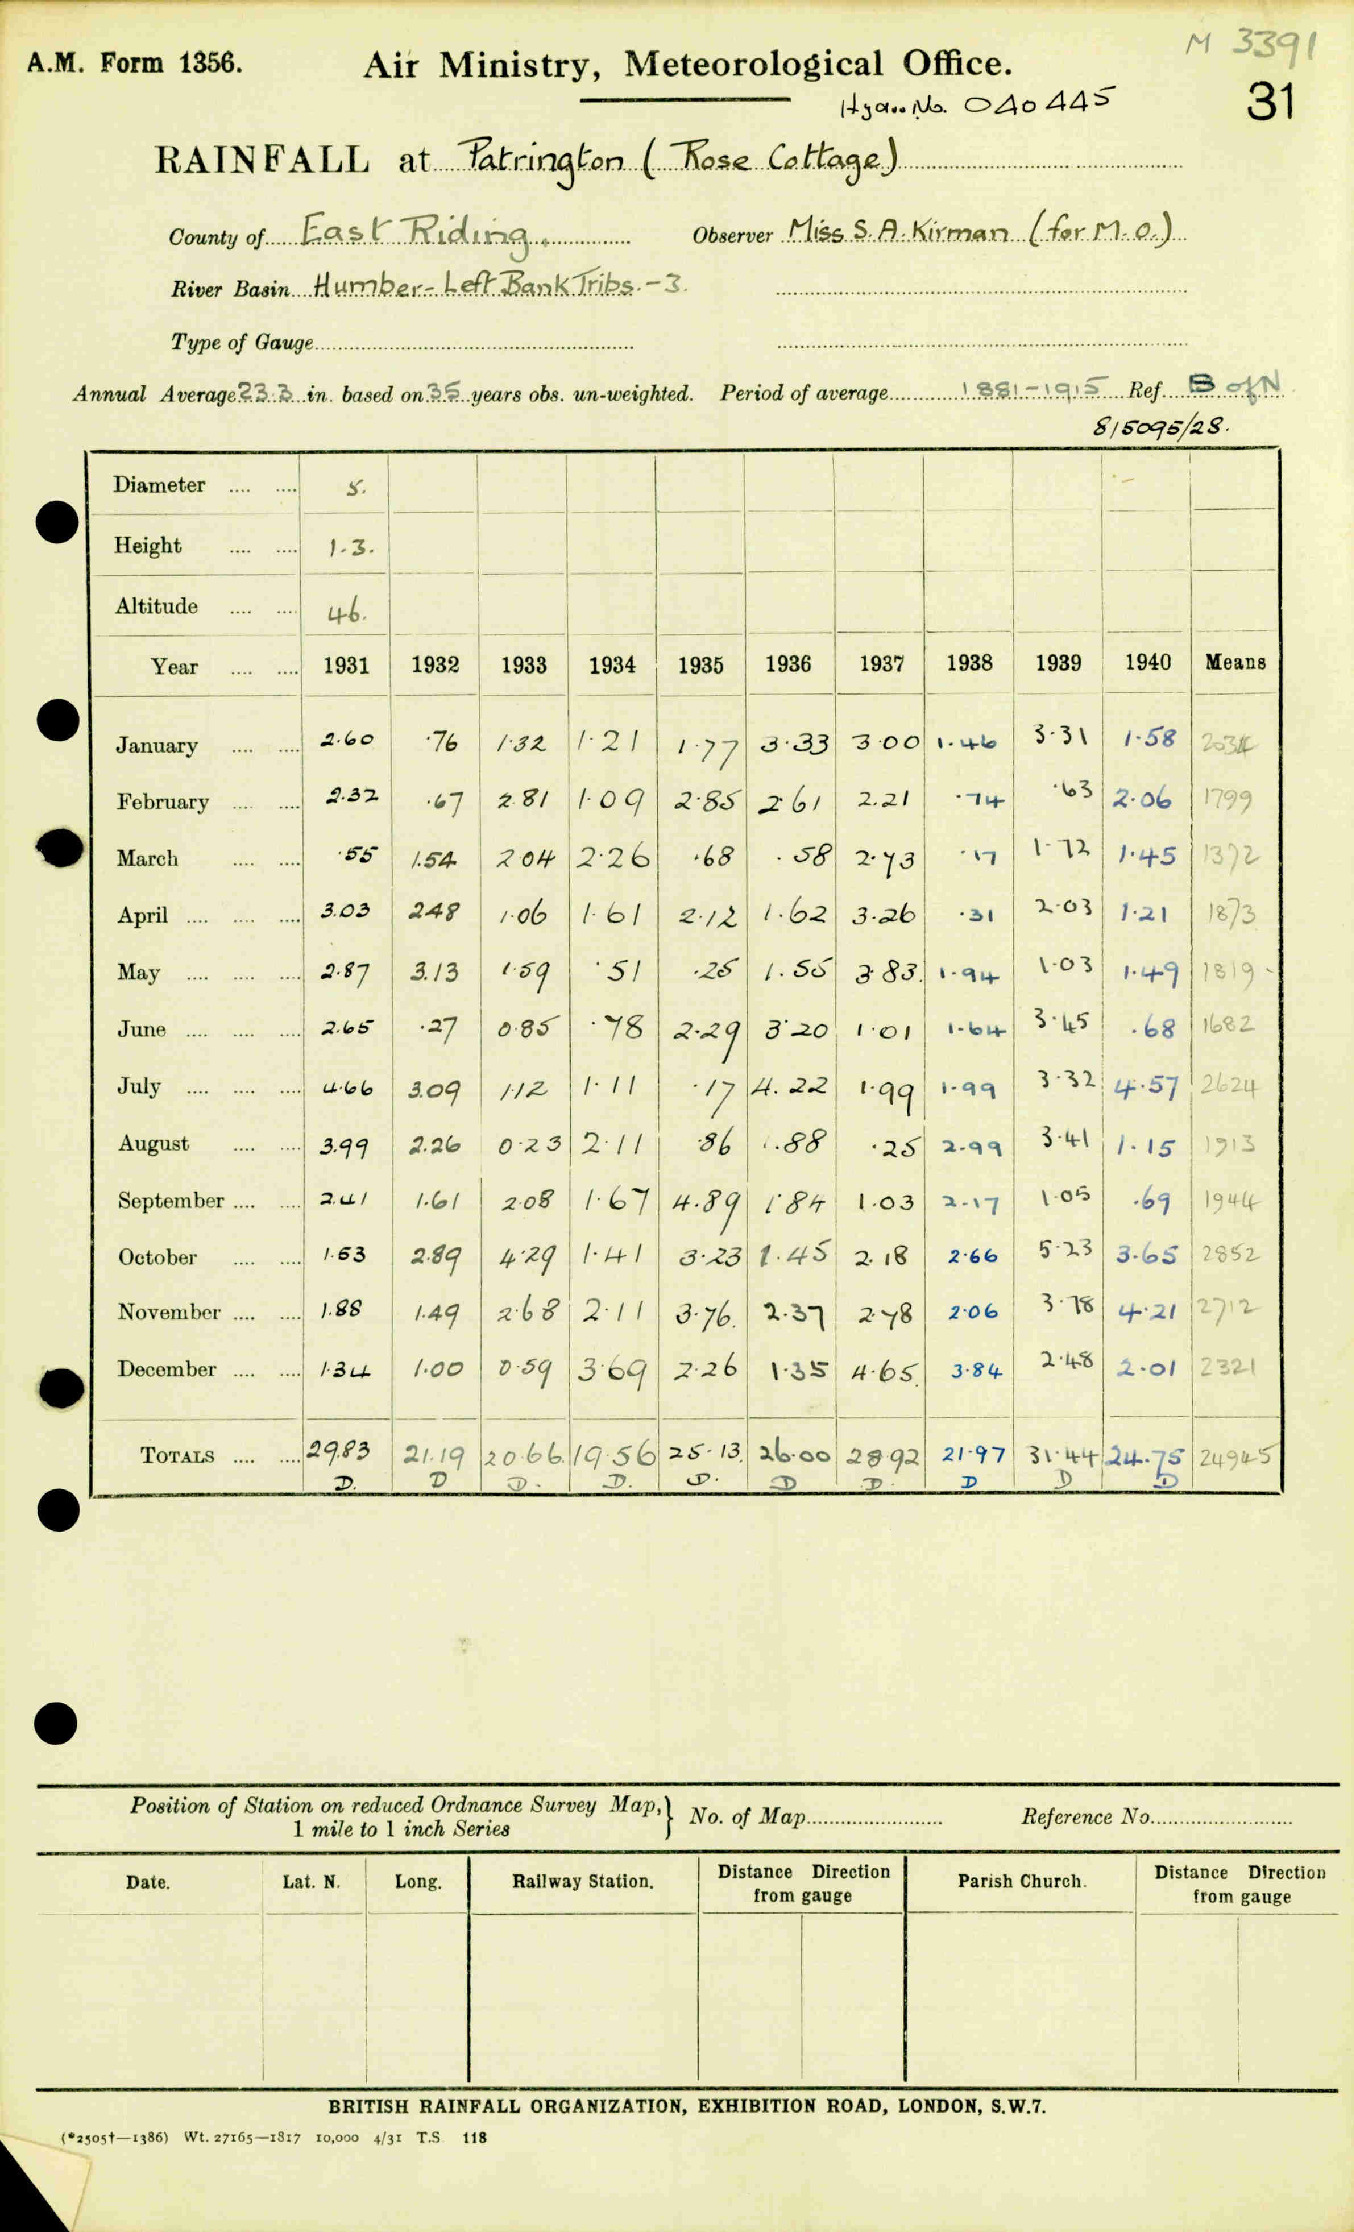 M 3391
A.M. Form 1356. Air Ministry, Meteorological Office.
31
No. 040445
RAINFALL at Patrington (Rose Cottage)
County of East Riding. Observer Miss S. A. Kirman (for M.O.)
River Basin Humber - Left Bank Tribs. - 3.
Type of Gauge
Annual Average 23.3 in. based on 35 years obs. un-weighted. Period of average 1881-1915 Ref. B of N
815095/28.
Diameter 5.
Height 1.3.
Altitude 46.
Year 1931 1932 1933 1934 1935 1936 1937 1938 1939 1940 Means
January 2.60 .76 1.32 1.21 1.77 3.33 3.00 1.46 3.31 1.58 2034
February 2.32 .67 2.81 1.09 2.85 2.61 2.21 .74 .63 2.06 1799
March .55 1.54 2.04 2.26 .68 .58 2.73 .17 1.72 1.45 1372
April 3.03 2.48 1.06 1.61 2.12 1.62 3.26 .31 2.03 1.21 1873
May 2.87 3.13 1.59 .51 .25 1.55 3.83 1.94 1.03 1.49 1819
June 2.65 .27 0.85 .78 2.29 3.20 1.01 1.64 3.45 .68 1682
July 4.66 3.09 1.12 1.11 .17 4.22 1.99 1.99 3.32 4.57 2624
August 3.99 2.26 0.23 2.11 .86 1.88 .25 2.99 3.41 1.15 1913
September 2.41 1.61 2.08 1.67 4.89 1.84 1.03 2.17 1.05 .69 1944
October 1.53 2.89 4.29 1.41 3.23 1.45 2.18 2.66 5.23 3.65 2852
November 1.88 1.49 2.68 2.11 3.76 2.37 2.78 2.06 3.78 4.21 2712
December 1.34 1.00 0.59 3.69 2.26 1.35 4.65 3.84 2.48 2.01 2321
TOTALS 29.83 21.19 20.66 19.56 25.13 26.00 28.92 21.97 31.44 24.75 24945
D. D D. D. D. D D. D D D
Position of Station on reduced Ordnance Survey Map, No. of Map Reference No.
1 mile to 1 inch Series
Date. Lat. N. Long. Railway Station. Distance Direction from gauge Parish Church. Distance Direction from gauge
BRITISH RAINFALL ORGANIZATION, EXHIBITION ROAD, LONDON, S.W.7.
(*2505†—1386) Wt. 27165—1817 10,000 4/31 T.S. 118